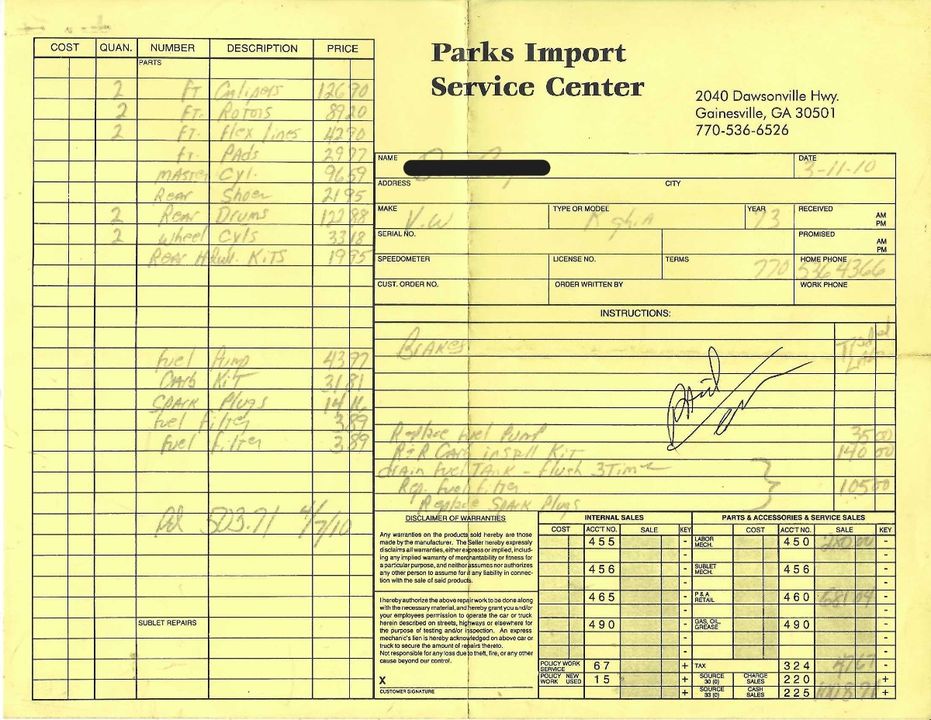 Parks Import
Service Center
2040 Dawsonville Hwy.
Gainesville, GA 30501
770-536-6526
COST QUAN. NUMBER DESCRIPTION PRICE
PARTS
2 FT Calipers 126 70
2 FT. Rotors 89 20
2 FT. Flex lines 42 90
FT. PADS 29 77
MASTER Cyl. 96 59
Rear Shoes 21 95
2 Rear Drums 122 88
2 wheel Cyls 33 18
Rear KiTS 19 95
Fuel Pump 43 97
Carb KiT 31 81
SPARK Plugs 14 16
Fuel Filter 3 89
Fuel Filter 3 89
Pd 503.71 4/7/10
SUBLET REPAIRS
NAME
DATE 3-11-10
ADDRESS CITY
MAKE V.W TYPE OR MODEL K ghiA YEAR 73 RECEIVED AM PM
SERIAL NO. PROMISED AM PM
SPEEDOMETER LICENSE NO. TERMS HOME PHONE 770 536 4366
CUST. ORDER NO. ORDER WRITTEN BY WORK PHONE
INSTRUCTIONS:
BrAKes
Replace Fuel Pump 35 00
R+R Carb install KiT 140 00
drain Fuel TANK - Flush 3 Time
Rep. Fuel Filter 105 00
Replace Spark Plugs
DISCLAIMER OF WARRANTIES
Any warranties on the products sold hereby are those
made by the manufacturer. The Seller hereby expressly
disclaims all warranties, either express or implied, includ-
ing any implied warranty of merchantability or fitness for
a particular purpose, and neither assumes nor authorizes
any other person to assume for it any liability in connec-
tion with the sale of said products.
I hereby authorize the above repair work to be done along
with the necessary material, and hereby grant you and/or
your employees permission to operate the car or truck
herein described on streets, highways or elsewhere for
the purpose of testing and/or inspection. An express
mechanic's lien is hereby acknowledged on above car or
truck to secure the amount of repairs thereto.
Not responsible for any loss due to theft, fire, or any other
cause beyond our control.
X
CUSTOMER SIGNATURE
INTERNAL SALES
COST ACC'T NO. SALE KEY
455 -
456 -
465 -
490 -
POLICY WORK SERVICE 67 +
POLICY NEW WORK USED 15 +
PARTS & ACCESSORIES & SERVICE SALES
COST ACC'T NO. SALE KEY
LABOR MECH. 450 280.00 -
SUBLET MECH. 456 -
P & A RETAIL 460 681 04 -
GAS, OIL, GREASE 490 -
TAX 324 47 67 -
SOURCE 30 (0) CHARGE SALES 220 +
SOURCE 33 (0) CASH SALES 225 1008 71 +